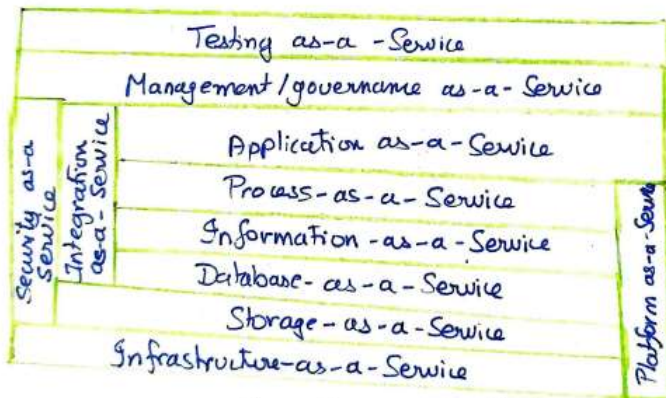 Testing as-a-Service
Management/governance as-a-Service
Security as-a
Service
Integration
as-a-Service
Application as-a-Service
Process-as-a-Service
Information-as-a-Service
Database-as-a-Service
Storage-as-a-Service
Infrastructure-as-a-Service
Platform as-a-Service